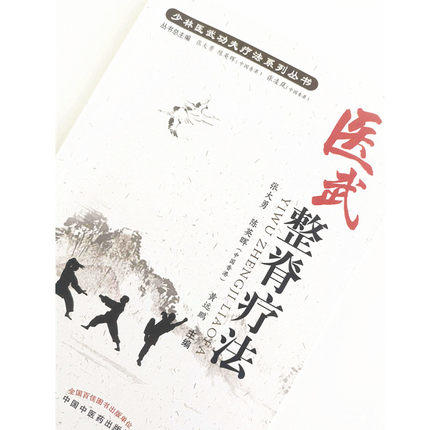 少林医武功夫疗法系列丛书
丛书总主编 张大勇 陈英晖(中国香港) 张孟超(中国香港)
医武
整脊疗法
YIWU ZHENGJI LIAOFA
张大勇 陈英晖(中国香港) 黄远鹏 主编
全国百佳图书出版单位
中国中医药出版